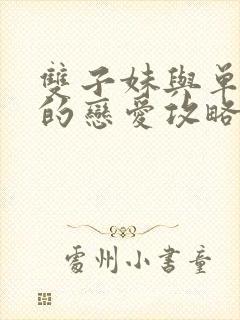 雙子妹與單
的戀愛攻略
處州小書童